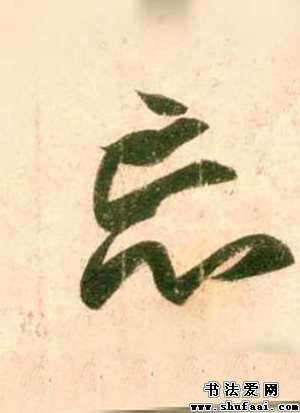 忘
书法爱网
www.shufaai.com